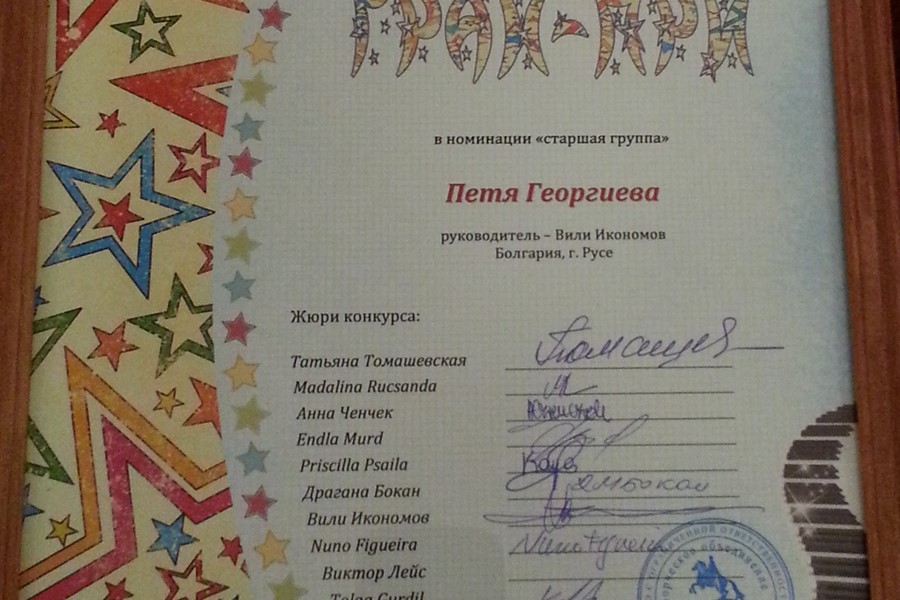 ГРАН-ПРИ
в номинации «старшая группа»
Петя Георгиева
руководитель – Вили Икономов
Болгария, г. Русе
Жюри конкурса:
Татьяна Томашевская
Madalina Rucsanda
Анна Ченчек
Endla Murd
Priscilla Psaila
Драгана Бокан
Вили Икономов
Nuno Figueira
Виктор Лейс
Tolga Gurdil